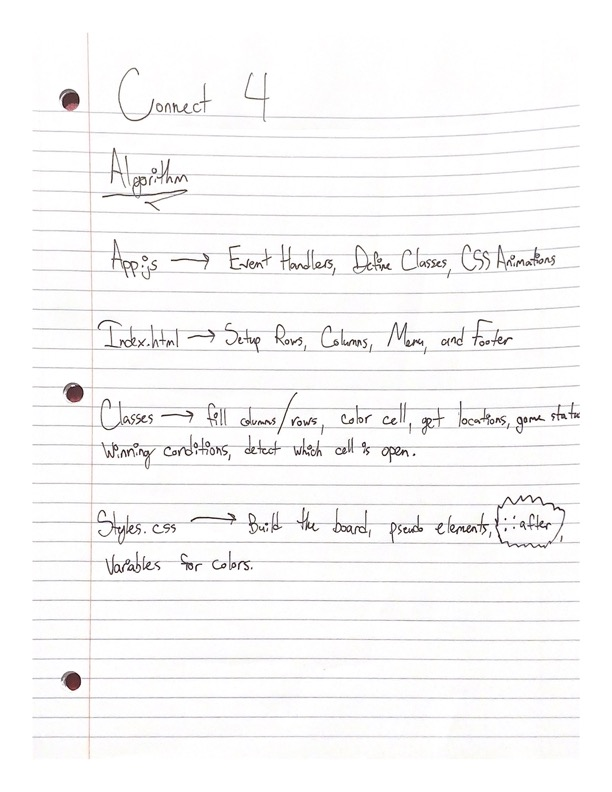 Connect 4
Algorithm
App.js → Event Handlers, Define Classes, CSS Animations
Index.html → Setup Rows, Columns, Menu, and Footer
Classes → fill columns/rows, color cell, get locations, game static
Winning conditions, detect which cell is open.
Styles.css → Build the board, pseudo elements, ::after,
Variables for colors.